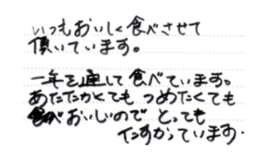 いつもおいしく食べさせて
頂いています。
一年を通して食べています。
あたたかくても つめたくても
おいしいので とっても
たすかっています.